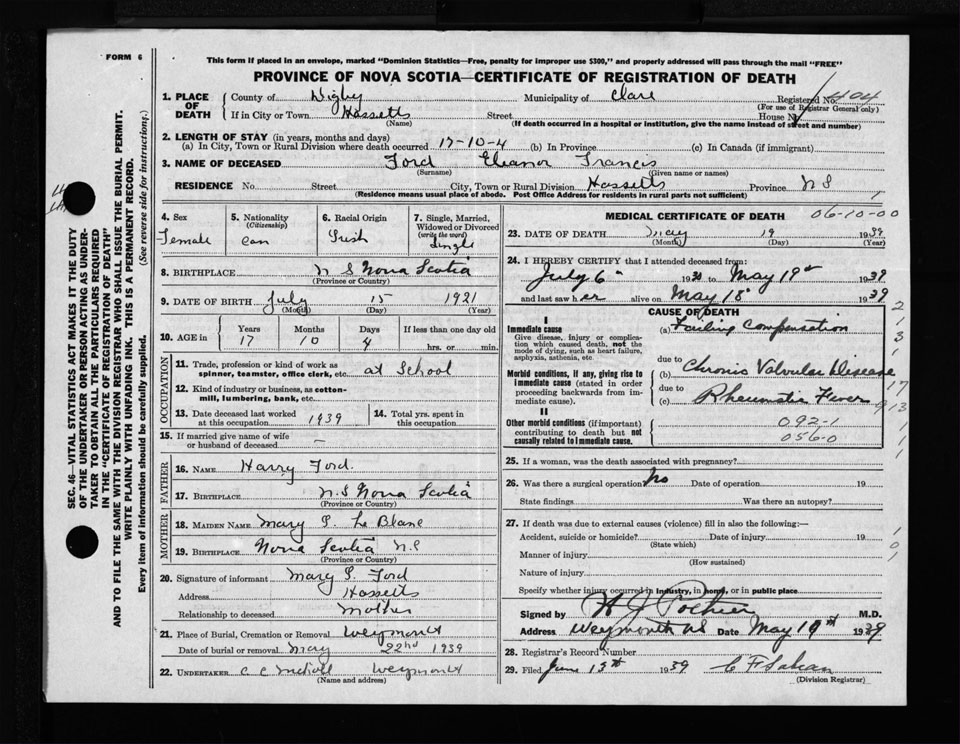 FORM 6
This form if placed in an envelope, marked "Dominion Statistics—Free, penalty for improper use $300," and properly addressed will pass through the mail "FREE"
PROVINCE OF NOVA SCOTIA—CERTIFICATE OF REGISTRATION OF DEATH
1. PLACE OF DEATH County of Digby Municipality of Clare Registered No. 404
(For use of Registrar General only)
If in City or Town Hassetts Street House No.
(Name) (If death occurred in a hospital or institution, give the name instead of street and number)
2. LENGTH OF STAY (in years, months and days)
(a) In City, Town or Rural Division where death occurred 17-10-4 (b) In Province (c) In Canada (if immigrant)
3. NAME OF DECEASED Ford Eleanor Francis
(Surname) (Given name or names)
RESIDENCE No. Street City, Town or Rural Division Hassetts Province N S
(Residence means usual place of abode. Post Office Address for residents in rural parts not sufficient) 1
SEC. 46—VITAL STATISTICS ACT MAKES IT THE DUTY
OF THE UNDERTAKER OR PERSON ACTING AS UNDER-
TAKER TO OBTAIN ALL THE PARTICULARS REQUIRED
IN THE "CERTIFICATE OF REGISTRATION OF DEATH"
AND TO FILE THE SAME WITH THE DIVISION REGISTRAR WHO SHALL ISSUE THE BURIAL PERMIT.
WRITE PLAINLY WITH UNFADING INK. THIS IS A PERMANENT RECORD.
Every item of information should be carefully supplied. (See reverse side for instructions.)
4. Sex 5. Nationality 6. Racial Origin 7. Single, Married,
(Citizenship) Widowed or Divorced
(write the word)
Female Can Irish Single
8. BIRTHPLACE N S Nova Scotia
(Province or Country)
9. DATE OF BIRTH July 15 1921
(Month) (Day) (Year)
10. AGE in Years Months Days If less than one day
17 10 4 hrs. or min.
OCCUPATION
11. Trade, profession or kind of work as
spinner, teamster, office clerk, etc. at School
12. Kind of industry or business, as cotton-
mill, lumbering, bank, etc.
13. Date deceased last worked
at this occupation 1939
14. Total yrs. spent in
this occupation
15. If married give name of wife
or husband of deceased —
FATHER
16. NAME Harry Ford.
17. BIRTHPLACE N.S Nova Scotia
(Province or Country)
MOTHER
18. MAIDEN NAME Mary S. Le Blanc
19. BIRTHPLACE Nova Scotia N.S
(Province or Country)
20. Signature of informant Mary S. Ford
Address Hassetts
Relationship to deceased Mother
21. Place of Burial, Cremation or Removal Weymouth
Date of burial or removal May 22nd 1939
22. UNDERTAKER C C Weymouth
(Name and address)
MEDICAL CERTIFICATE OF DEATH 06-10-00
23. DATE OF DEATH May 19 1939
(Month) (Day) (Year)
24. I HEREBY CERTIFY that I attended deceased from:
July 6 to May 19th 1939
and last saw her alive on May 18 1939
CAUSE OF DEATH
I
Immediate cause
Give disease, injury or complica-
tion which caused death, not the
mode of dying, such as heart failure,
asphyxia, asthenia, etc.
(a) Failing Compensation
due to
Morbid conditions, if any, giving rise to
immediate cause (stated in order
proceeding backwards from im-
mediate cause).
(b) Chronic Valvular Disease
due to
(c) Rheumatic Fever
II
Other morbid conditions (if important)
contributing to death but not
causally related to immediate cause.
092-1
056-0
25. If a woman, was the death associated with pregnancy?
26. Was there a surgical operation? No Date of operation 19
State findings Was there an autopsy?
27. If death was due to external causes (violence) fill in also the following:—
Accident, suicide or homicide? Date of injury 19
(State which)
Manner of injury
(How sustained)
Nature of injury
Specify whether injury occurred in industry, in home, or in public place
Signed by M.D.
Address Weymouth NS Date May 19th 1939
28. Registrar's Record Number
29. Filed June 13th 1939
(Division Registrar)